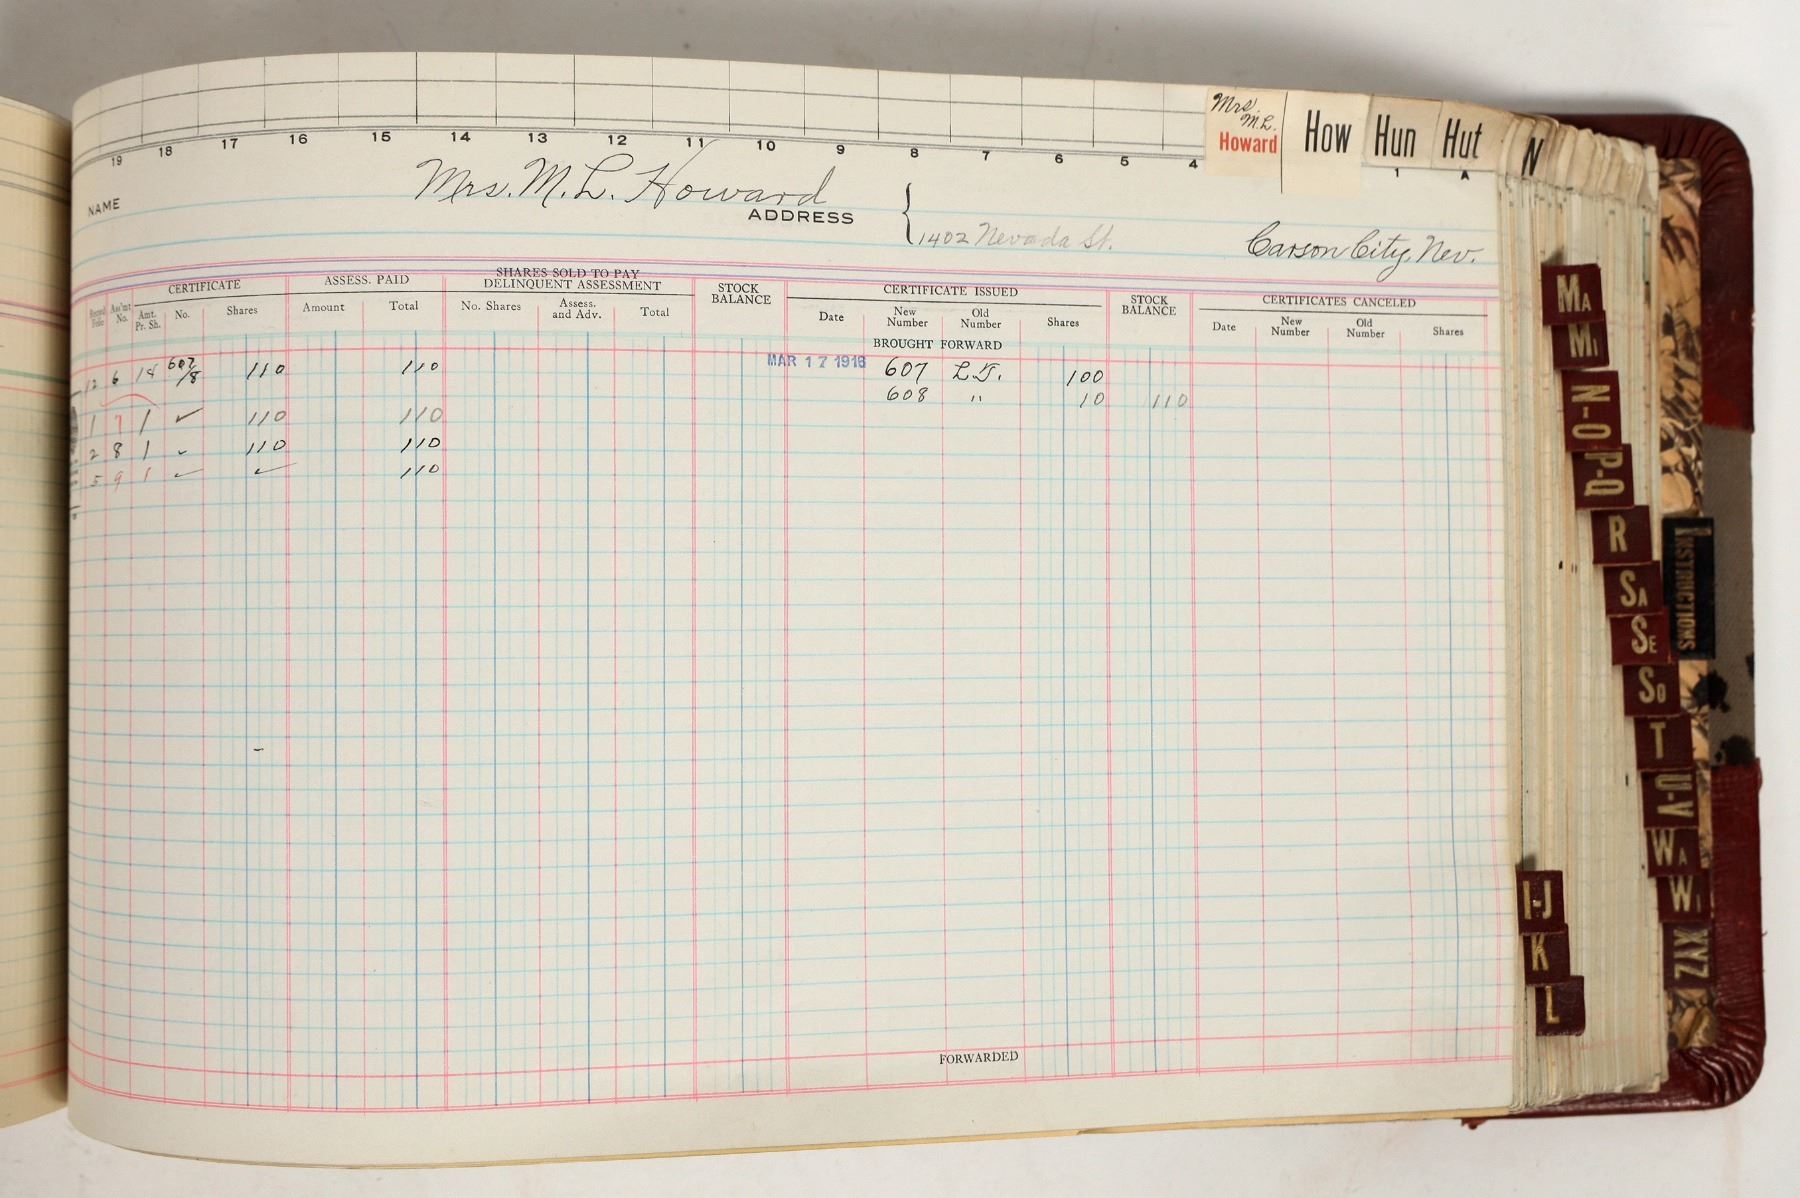 Mrs.
M.L.
Howard How Hun Hut N
19 18 17 16 15 14 13 12 11 10 9 8 7 6 5 4 1 A
NAME Mrs. M. L. Howard
ADDRESS { 1402 Nevada St. Carson City, Nev.
CERTIFICATE ASSESS. PAID SHARES SOLD TO PAY DELINQUENT ASSESSMENT STOCK BALANCE CERTIFICATE ISSUED STOCK BALANCE CERTIFICATES CANCELED
Record Folio Ass'mt No. Amt. Pr. Sh. No. Shares Amount Total No. Shares Assess. and Adv. Total Date New Number Old Number Shares Date New Number Old Number Shares
BROUGHT FORWARD
12 6 607/8 110 110 MAR 17 1916 607 100
608 " 10 110
1 7 1 ✓ 110 110
2 8 1 ✓ 110 110
5 9 1 ✓ ✓ 110
FORWARDED
MA
MI
N-O
P-Q
R
SA
SE
SO
T
U-V
WA
WI
XYZ
INSTRUCTIONS
I-J
K
L